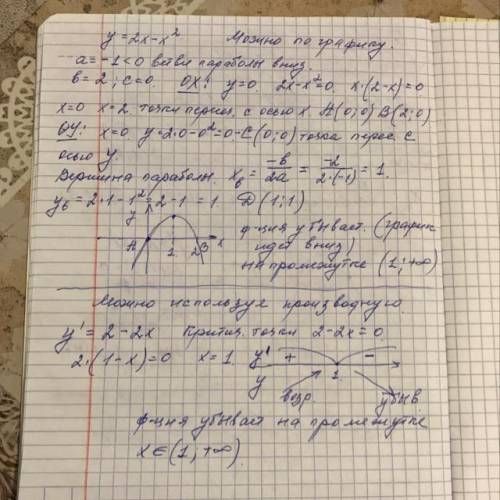 y = 2x - x² Можно по графику.
a = -1 < 0 ветви параболы вниз.
b = 2; c = 0. OX: y = 0. 2x - x² = 0. x·(2-x) = 0
x = 0 x = 2. точки перес. с осью x. A(0;0) B(2;0)
OY: x = 0. y = 2·0 - 0² = 0 - C(0;0) точка перес. с
осью y.
Вершина параболы. x_в = -b/2a = -2/2·(-1) = 1.
y_в = 2·1 - 1² = 2 - 1 = 1 D(1;1)
y
A 1 2 B x
ф-ция убывает. (график
идёт вниз)
на промежутке (1; +∞)
Можно используя производную
y' = 2 - 2x Критич. точки 2 - 2x = 0.
2·(1-x) = 0 x = 1. y' + -
y 1.
возр убыв
ф-ция убывает на промежутке
x ∈ (1; +∞)